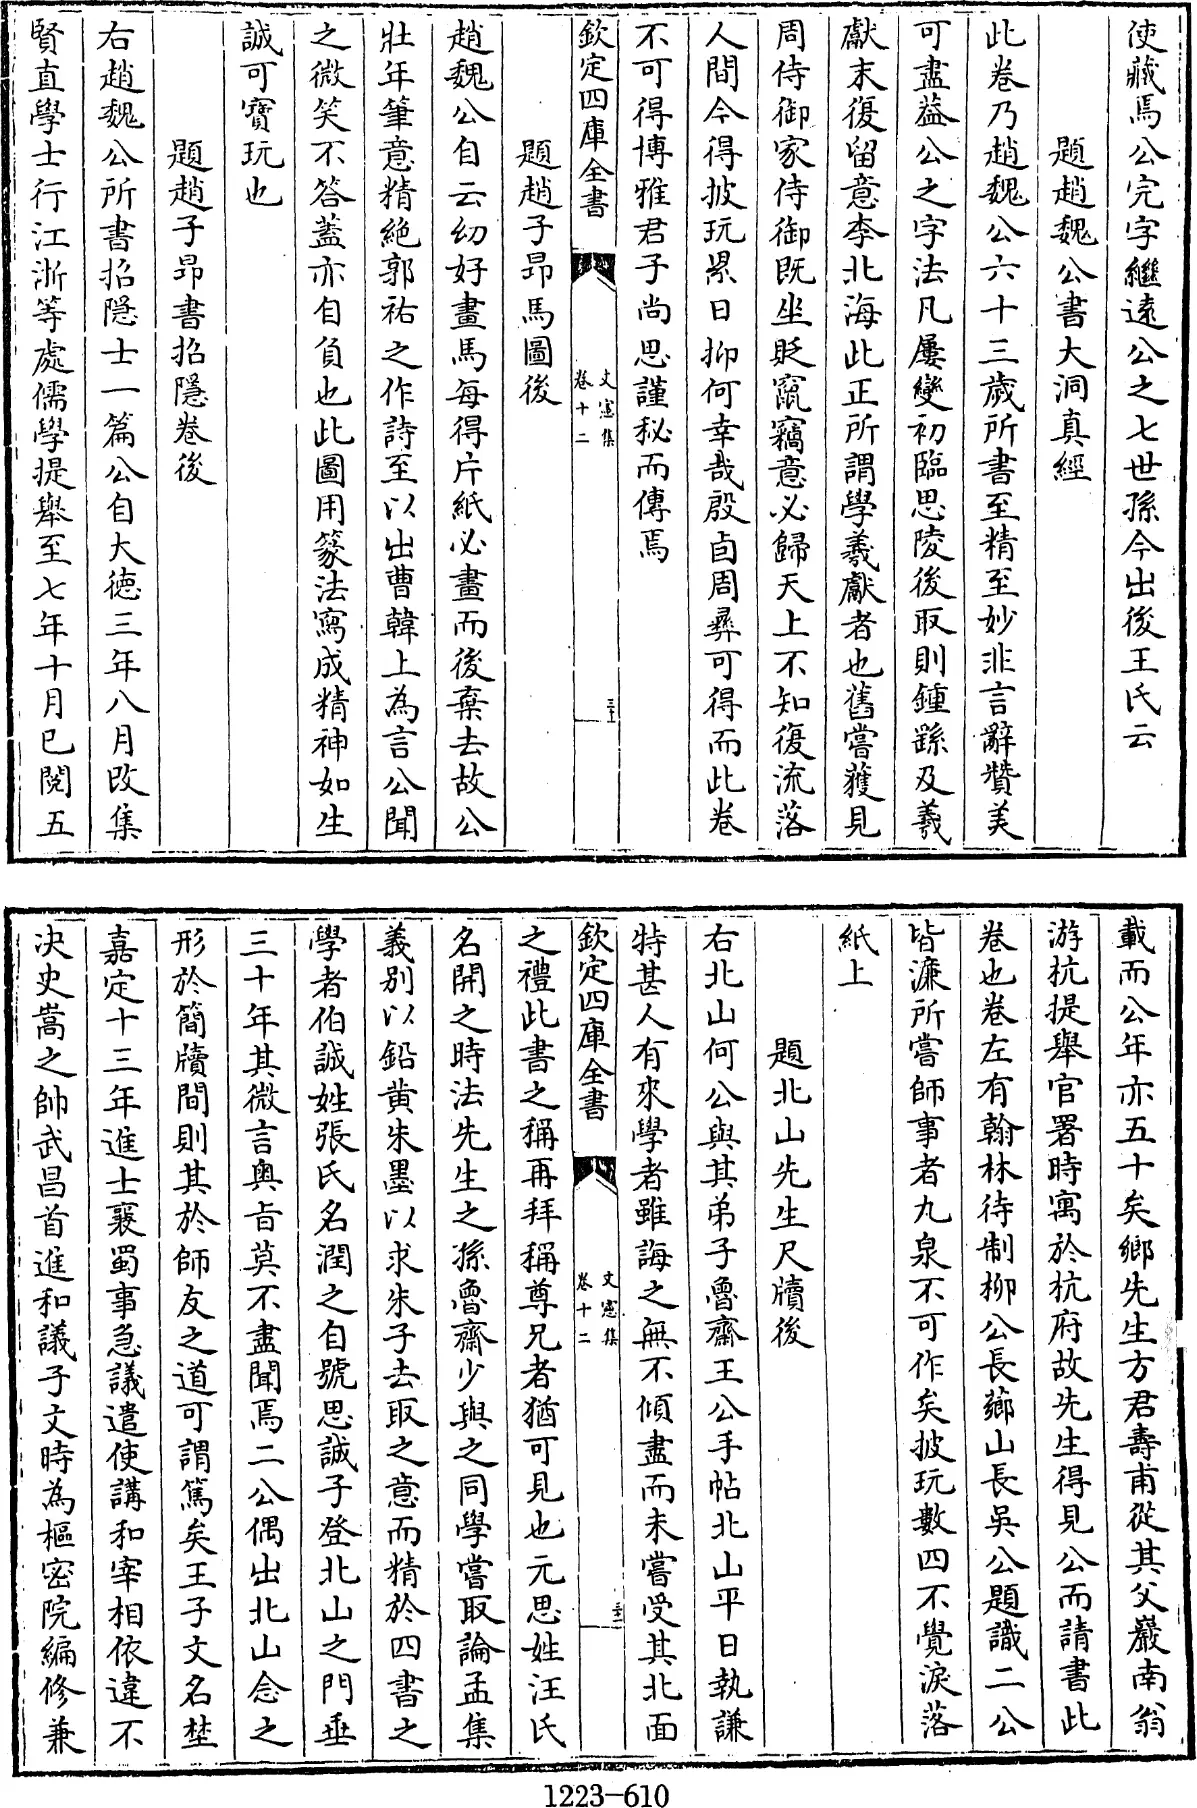 使藏焉公完字繼遠公之七世孫今出後王氏云
題趙魏公書大洞真經
此卷乃趙魏公六十三歲所書至精至妙非言辭贊美
可盡葢公之字法凡屢變初臨思陵後取則鍾繇及羲
獻末復留意李北海此正所謂學羲獻者也舊嘗獲見
周侍御家侍御既坐貶竄竊意必歸天上不知復流落
人間今得披玩累日抑何幸哉殷卣周彞可得而此卷
不可得博雅君子尚思謹秘而傳焉
欽定四庫全書
文憲集
卷十二
三十一
題趙子昂馬圖後
趙魏公自云幼好畫馬每得片紙必畫而後棄去故公
壯年筆意精絶郭祐之作詩至以出曹韓上為言公聞
之微笑不答蓋亦自負也此圖用篆法寫成精神如生
誠可寳玩也
題趙子昂書招隱卷後
右趙魏公所書招隱士一篇公自大徳三年八月改集
賢直學士行江浙等處儒學提舉至七年十月已閲五
載而公年亦五十矣鄉先生方君壽甫從其父巖南翁
游杭提舉官署時寓於杭府故先生得見公而請書此
卷也卷左有翰林待制柳公長薌山長吳公題識二公
皆濂所嘗師事者九泉不可作矣披玩數四不覺淚落
紙上
題北山先生尺牘後
右北山何公與其弟子魯齋王公手帖北山平日執謙
特甚人有來學者雖誨之無不傾盡而未嘗受其北面
欽定四庫全書
文憲集
卷十二
之禮此書之稱再拜稱尊兄者猶可見也元思姓汪氏
名開之時法先生之孫魯齋少與之同學嘗取論孟集
義别以鉛黄朱墨以求朱子去取之意而精於四書之
學者伯誠姓張氏名潤之自號思誠子登北山之門垂
三十年其微言奥㫖莫不盡聞焉二公偶出北山念之
形於簡牘間則其於師友之道可謂篤矣王子文名埜
嘉定十三年進士襄蜀事急議遣使講和宰相依違不
决史嵩之帥武昌首進和議子文時為樞密院編修兼
1223-610